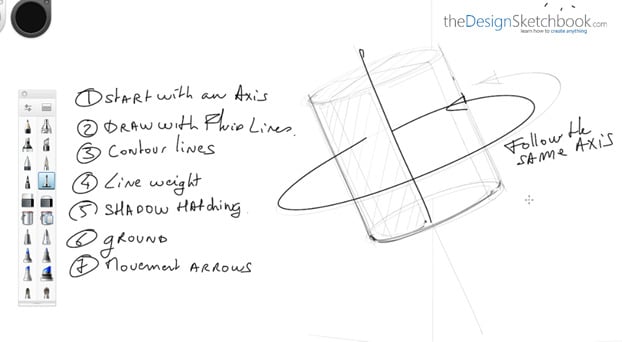 theDesignSketchbook.com
learn how to create anything
1 START with an Axis
2 DRAW with Fluid Lines.
3 Contour lines
4 Line weight
5 SHADOW HATCHING.
6 gROUND
7 Movement ARROWS
Follow the
SAME AXIS